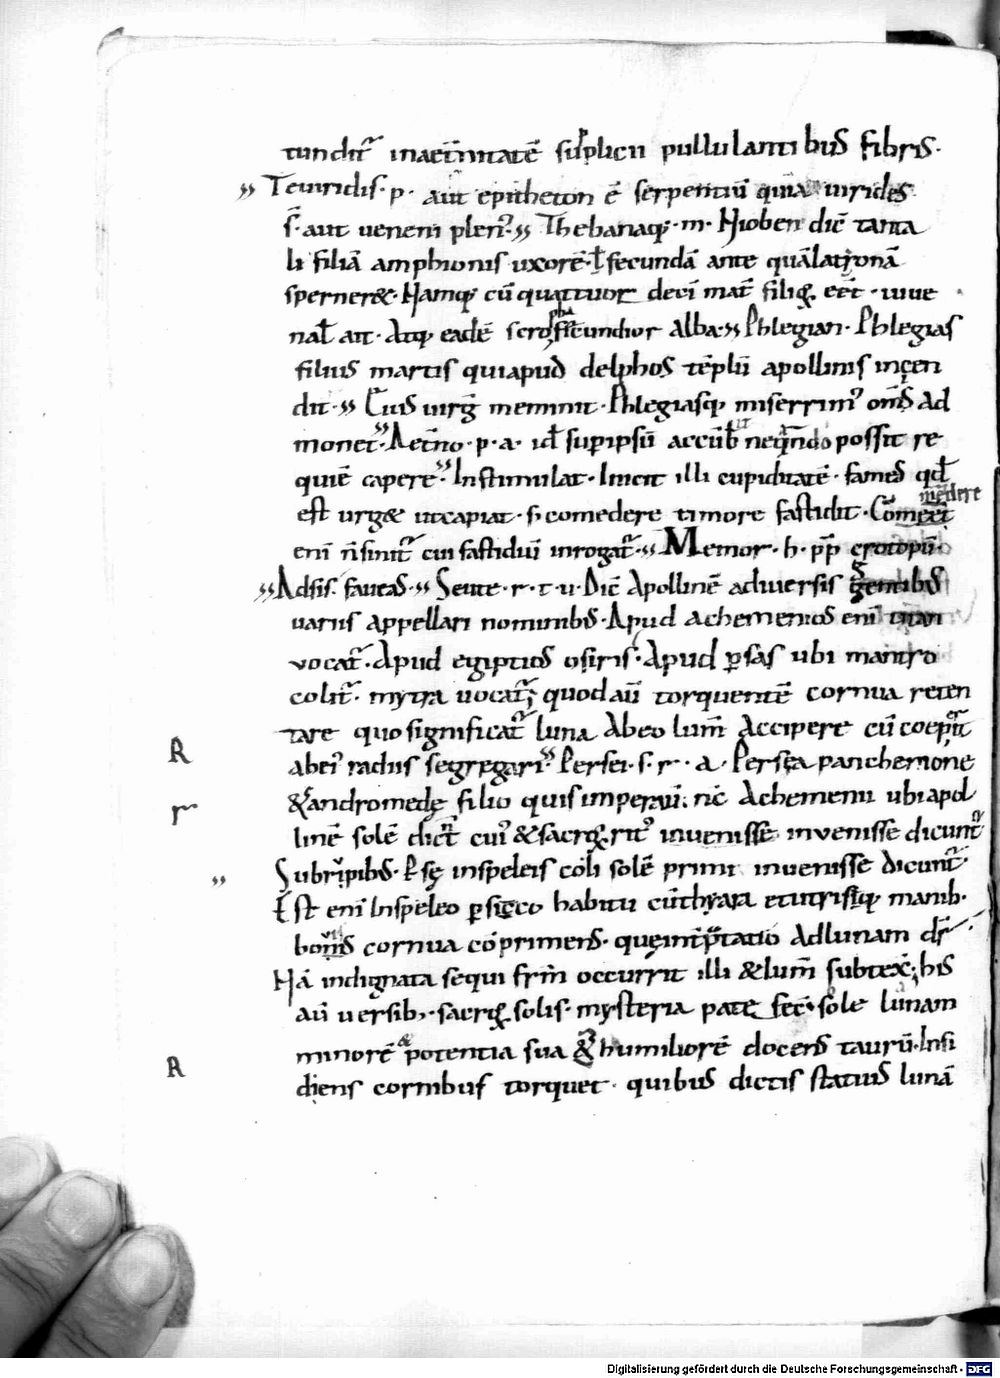 tundit᷑ inaet̄nitatē supplicii pullulantibus fibris·
Teuiridis· p· aut epitheton ē serpentiū quia uirides
s̄· aut ueneni plen᷒· Thebanaq;· m· Nioben dic̄ tanta
li filiā amphionis uxorē· ł fecundā ante quā latonā
sperner&· Namq; cū quattuor decī mat̄ filiꝝ eēt· iuue
nał ait· Atq; eadē scrofa fecundior alba· Phlegian· Phlegias
filius martis qui apud delphos tēplū apollinis incen
dit· Cuius uirḡ meminit· Phlegiasq; miserrim᷒ om̄s ad
monet· Aet̄no· p· a· id ē sup ipsū accūb neq̄ndo possit re
quiē capere· Instimulat· Inicit illi cupiditatē· fames qd̄
est urg& ut capiat· s· comedere timore fastidit·
medere
enī n̄ sinit᷑ cui fastidiū inrogat᷑· Memor· h· pp̄ crotopū·
Adsis· faueas· Seu te· r· t· u· Dic̄ Apollinē aduersis gentibus
uariis appellari nominibus· Apud achemenios enī titan
vocat᷑· Apud egiptios osiris· Apud ꝑsas ubi mantro
colit᷑· mytra uocat᷑; quod aū torquentē cornua reten
tare quo significat᷑ luna Abeo lum̄ Accipere cū coeperit
abei᷒ radiis segregari· Persei· s· r· a· Persea panchemone
&andromedę filio qui simperauī· nc̄ Achemenii ubi apol
linē solē dicт̄ cui᷒ & sacroꝝ rit᷒ inuenisse invenisse dicunt᷑
Sub rupibus· Psę inspeleis coli solē primi inuenisse dicunt᷑·
Est enī In speleo ꝑsico habitu cū thyara et utrisq; manib·
bouis cornua cōprimens· quę int̄ptatio Ad lunam dr̄·
Nā indignata sequi frm̄ occurrit illi & lum̄ subtex̄; his
aū uersib; sacroꝝ solis· mysteria patefec· sole lunam
minorē & potentia sua & humiliorē docens taurū· Insi
diens cornibus torquet· quibus dictis statius lunā
R
r
R
Digitalisierung gefördert durch die Deutsche Forschungsgemeinschaft - DFG